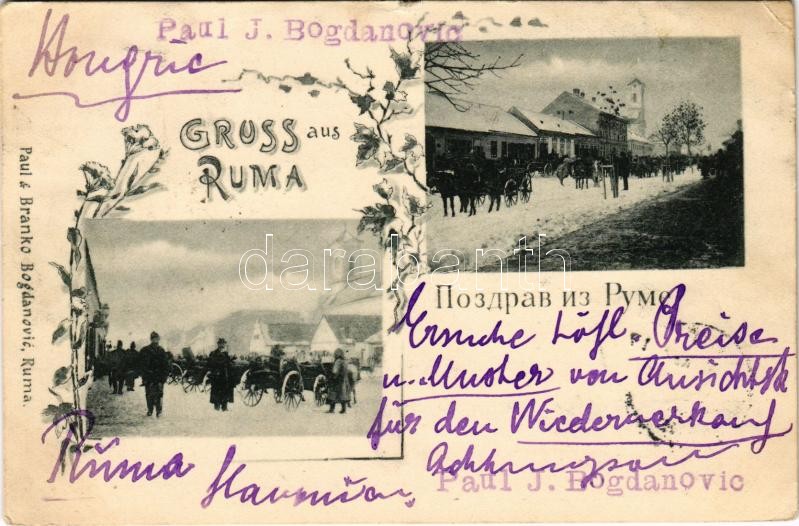 Paul J. Bogdanovic
Hongrie
GRUSS aus
RUMA
Paul & Branko Bogdanović, Ruma.
darabanth
Поздрав из Руме
Ersuche höfl. Preise
u. Muster von Ansichtsk
für den Wiederverkauf
Ruma
Paul J. Bogdanovic